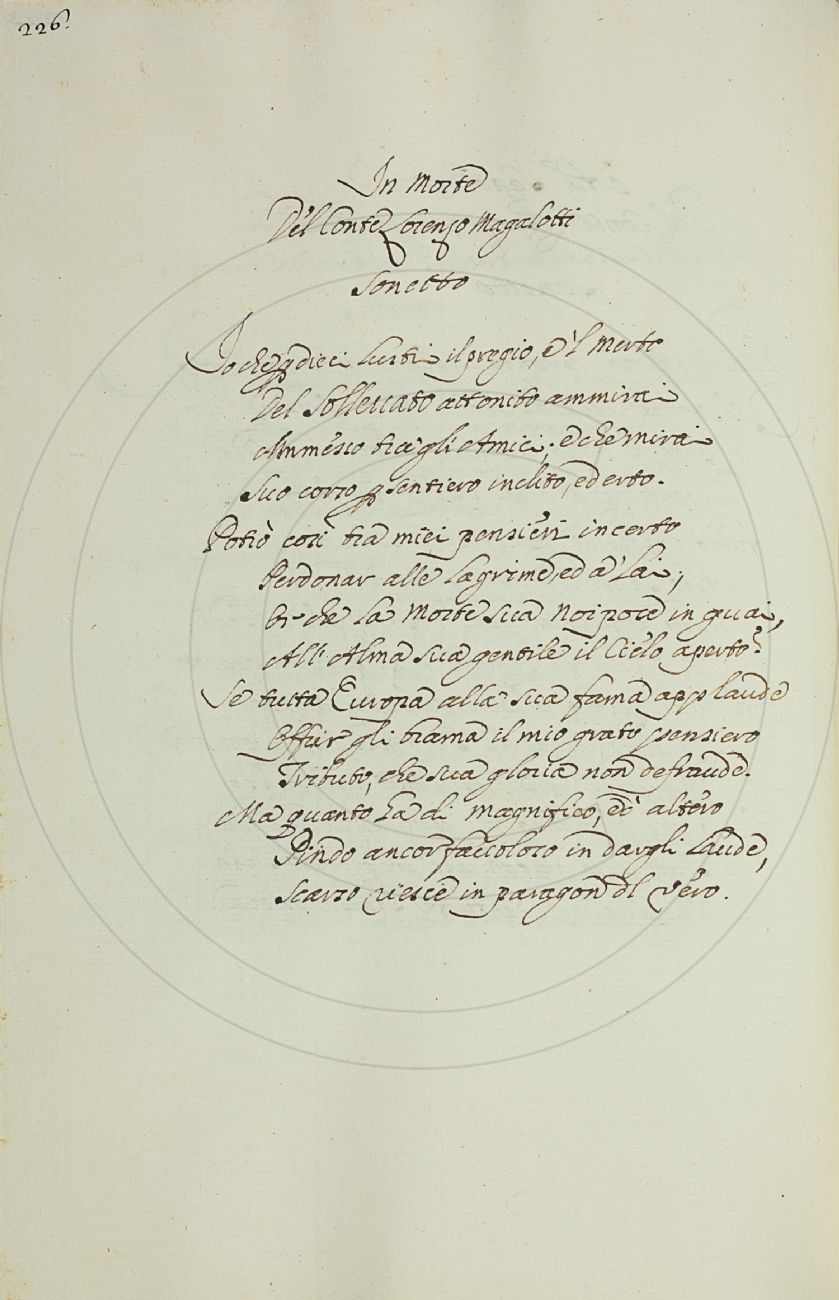 226.
In Morte
Del Conte Lorenzo Magalotti
Sonetto
Io che p dieci lustri il pregio, e 'l Merto
Del Sollevato attonito ammirai
Ammesso tra gli Amici; e che mirai
Suo corso p sentiero inclito, ed erto.
Potrò così tra miei pensieri incerto
Perdonar alle lagrime, ed a' Lai,
Or che la Morte sua Noi pose in guai,
All' Alma sua gentile il Cielo aperto?
Se tutta Europa alla sua fama applaude
Offrir gli brama il mio grato pensiero
Tributo, che sua gloria non defraude.
Ma quanto ha di magnifico, ed altero
Pindo ancor facciloro in dargli Laude,
Scarso riesce in paragon del vero.